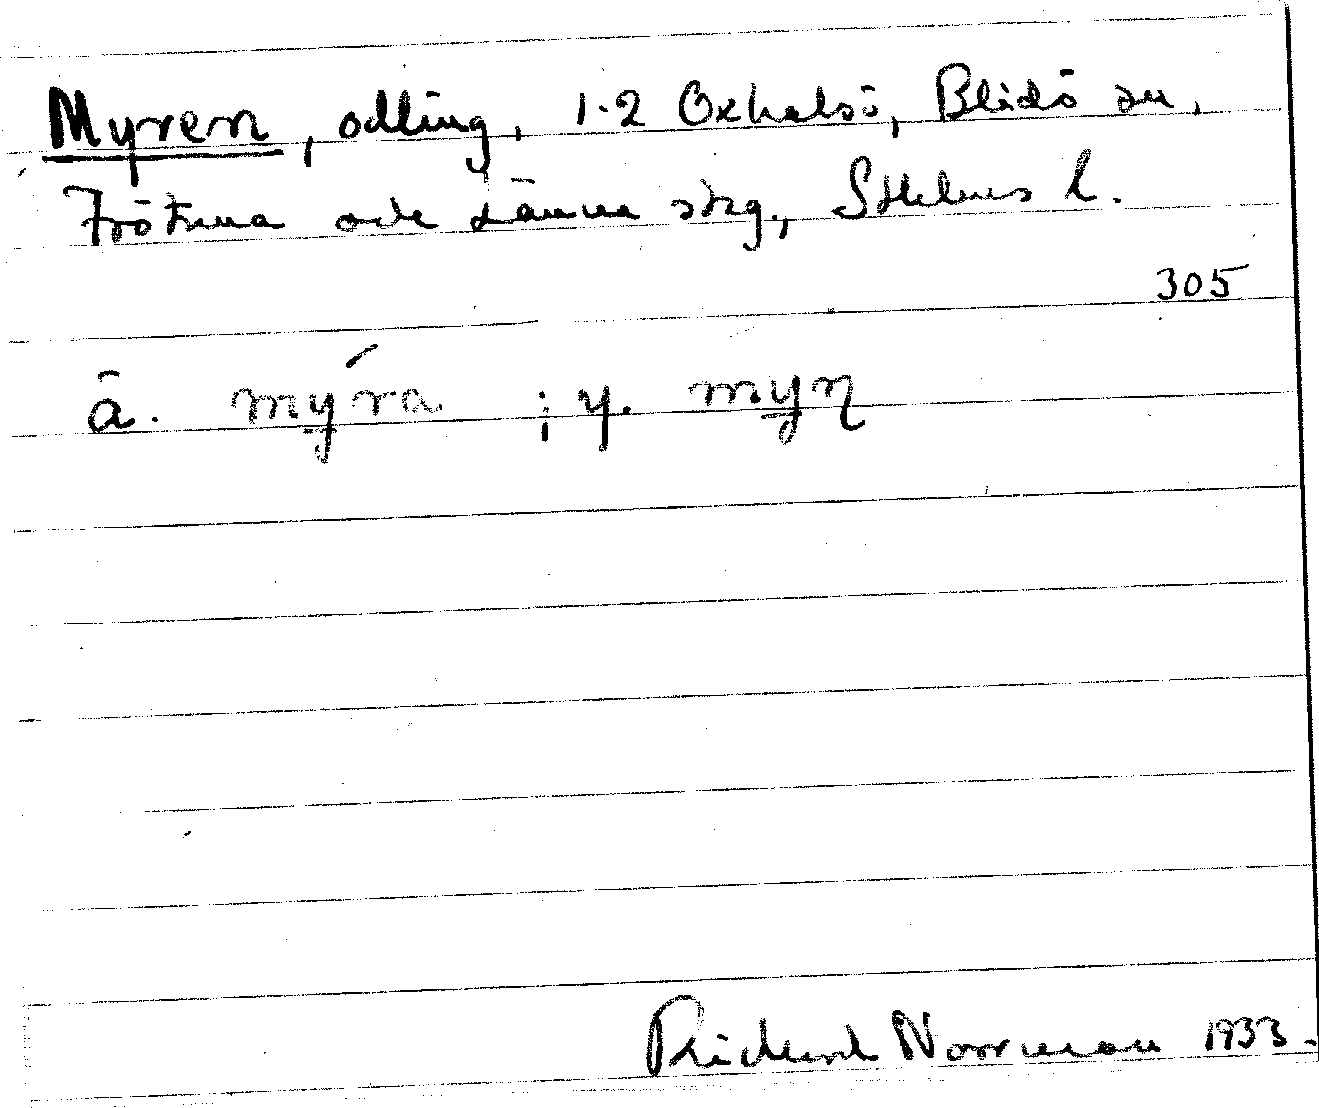 Myren, odling, 1-2 Oxhalsö, Blidö sn,
Frötuna och Länna skg., Sthlms l.
305
ä. mýra ; y. myɳ
Rickard Norrman 1933.